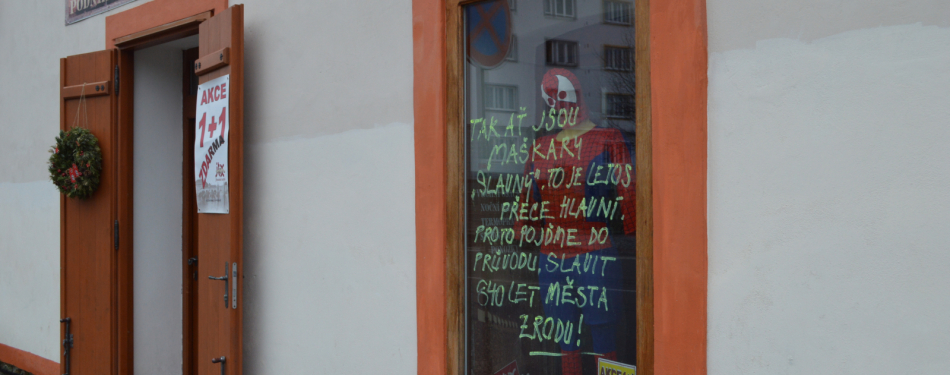 AKCE
1+1
ZDARMA
TAK AŤ JSOU
MAŠKARY
„SLAVNÝ". TO JE LETOS
PŘECE HLAVNÍ.
PROTO POJĎME DO
PRŮVODU, SLAVIT
640 LET MĚSTA
ZRODU!